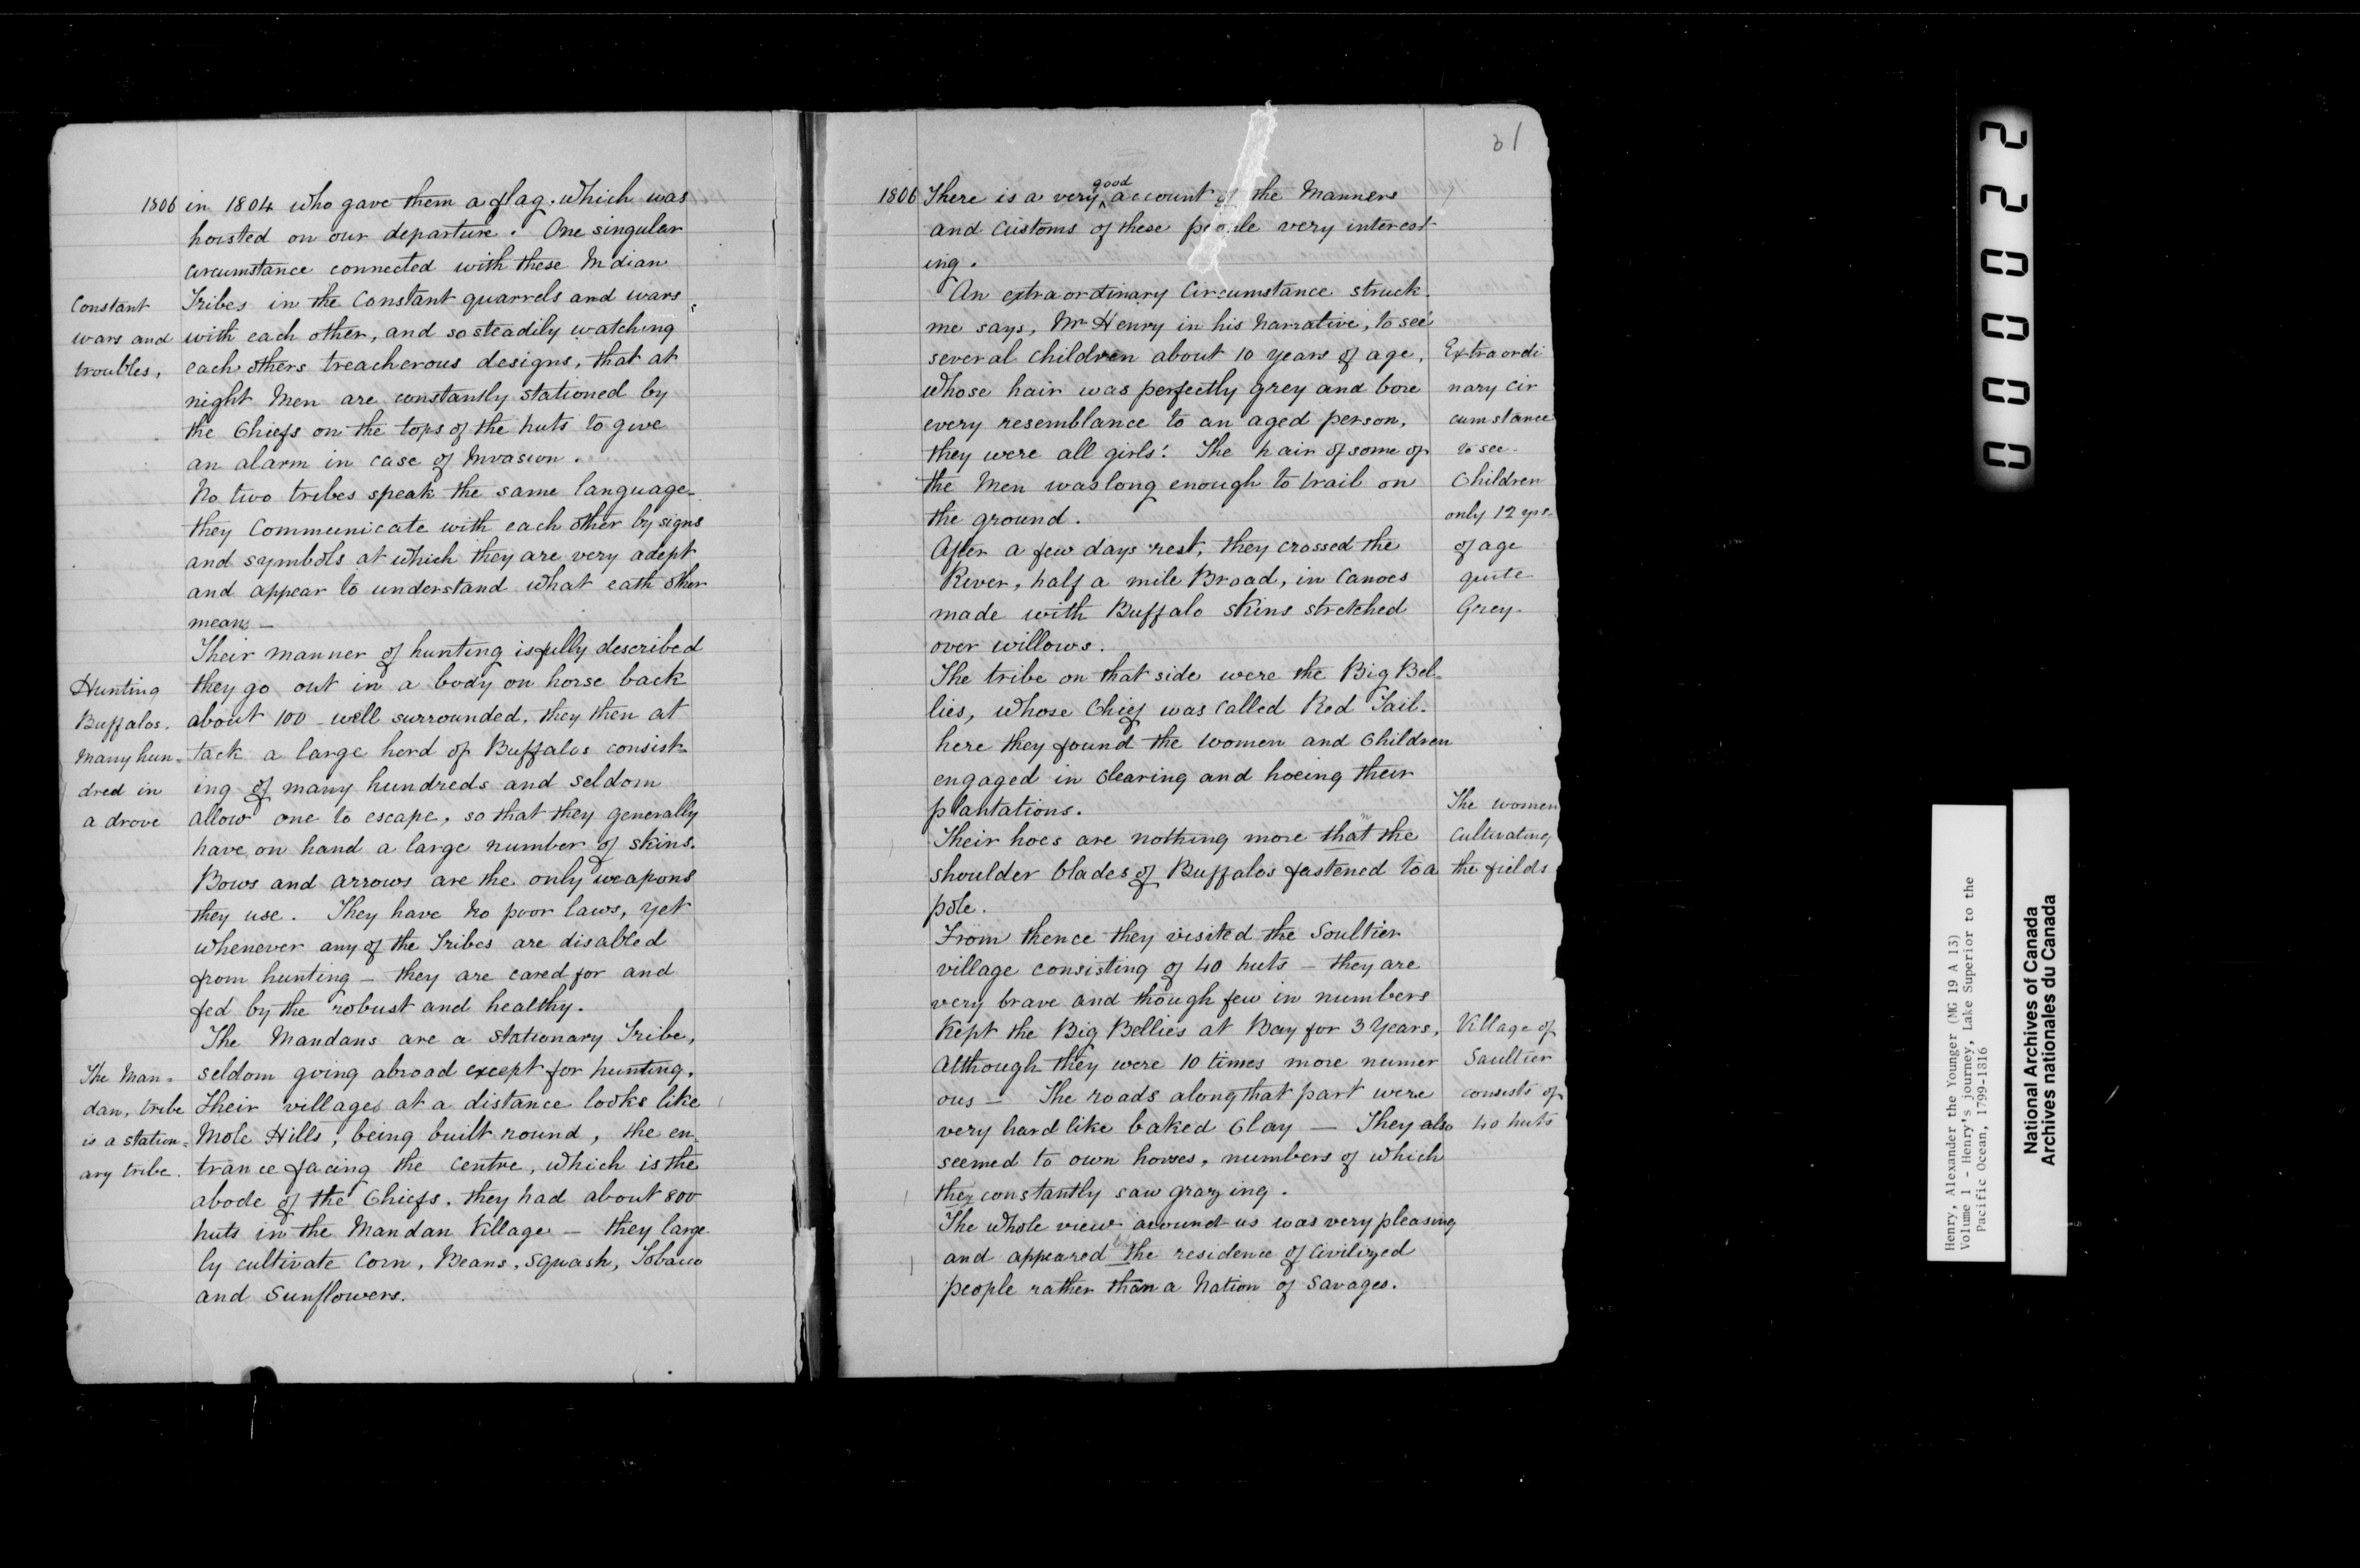 1806 in 1804 who gave them a flag. which was
hoisted on our departure. One singular
circumstance connected with these Indian
Constant
wars and
troubles,
Tribes in the Constant quarrels and wars
with each other, and so steadily watching
each others treacherous designs, that at
night Men are constantly stationed by
the Chiefs on the tops of the huts to give
an alarm in case of Invasion.
No two tribes speak the same language-
they Communicate with each other by signs
and symbols at which they are very adept
and appear to understand what eath other
means -
Their manner of hunting is fully described
Hunting
Buffalos.
Many hun-
dred in
a drove
they go out in a body on horse back
about 100 - well surrounded, they then at
tack a large herd of Buffalos consist-
ing of many hundreds and seldom
allow one to escape, so that they generally
have on hand a large number of skins.
Bows and arrows are the only weapons
they use. They have no poor laws, yet
whenever any of the Tribes are disabled
from hunting - they are cared for and
fed by the robust and healthy.
The Mandans are a stationary Tribe,
The Man-
dan, tribe
is a station-
ary tribe.
seldom going abroad except for hunting.
Their villages at a distance looks like
Mole Hills, being built round, the en-
trance facing the centre, which is the
abode of the Chiefs. they had about 800
huts in the Mandan Village - they large-
ly cultivate Corn, Beans, Squash, Tobacco
and Sunflowers.
31
1806 There is a very good account of the Manners
and Customs of these people very interest-
ing.
An extraordinary Circumstance struck
me says, Mr Henry in his Narrative, to see
several children about 10 years of age,
whose hair was perfectly grey and bore
every resemblance to an aged person,
they were all girls! The hair of some of
the Men was long enough to trail on
the ground.
Extraordi
nary Cir
cumstance
to see-
Children
only 12 yrs-
of age
quite
Grey-
After a few days rest, they crossed the
River, half a mile Broad, in Canoes
made with Buffalo skins stretched
over willows.
The tribe on that side were the Big Bel-
lies, whose Chief was called Red Tail-
here they found the women and Children
engaged in Clearing and hoeing their
plantations.
The women
cultivating
the fields
Their hoes are nothing more that the
n
shoulder blades of Buffalos fastened to a
pole.
From thence they visited the Soultier
village consisting of 40 huts - they are
very brave and though few in numbers
Kept the Big Bellies at Bay for 3 Years,
Although they were 10 times more numer
ous - The roads along that part were
very hard like baked Clay - They also
Village of
Saultier
consists of
40 huts
seemed to own horses, numbers of which
they constantly saw grazing.
The whole view around us was very pleasing
and appeared the residence of Civilized
people rather than a Nation of Savages.
220000
Henry, Alexander the Younger (MG 19 A 13)
Volume 1 - Henry's journey, Lake Superior to the
Pacific Ocean, 1799-1816
National Archives of Canada
Archives nationales du Canada